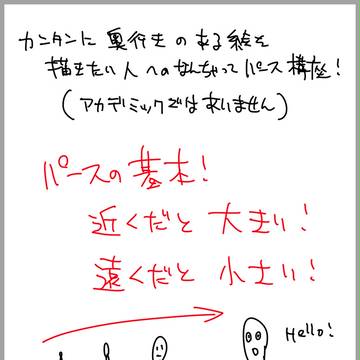 カンタンに奥行きのある絵を
描きたい人へのなんちゃってパース講座!
(アカデミックではありません)
パースの基本!
近くだと大きい!
遠くだと小さい!
Hello!